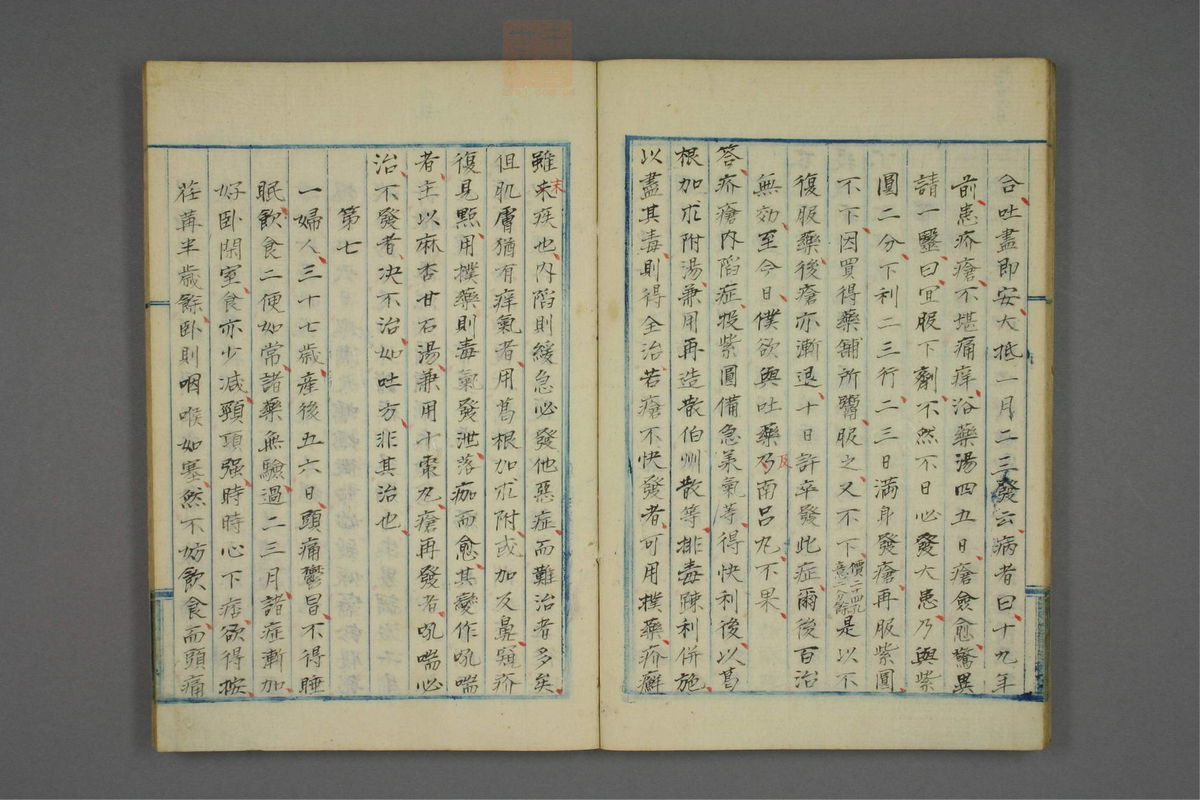 合吐盡即安大抵一月二三發云病者曰十九年
前患疥瘡不堪痛痒浴藥湯四五日瘡愈愈驚異
請一醫曰冝服下劑不然不日必發大患乃與紫
圓二分下利二三行二三日滿身發瘡再服紫圓
不下因買得藥舖所鬻服之又不下是以不
復服藥後瘡亦漸退十日許卒發此症爾後百治
無効至今日僕欲與吐藥乃反南呂丸不果
答疥瘡内陷症投紫圓備急美氣等得快利後以葛
根加朮附湯兼用再造散伯州散等排毒疎利併施
以盡其毒則得全治若瘡不快發者可用撲藥疥癬
雖末疾也内陷則緩急必發他惡症而難治者多矣
但肌膚猶有痒氣者用葛根加朮附或加反鼻窺疥
復見點用撲藥則毒氣發泄落痂而愈其變作吼喘
者主以麻杏甘石湯兼用十棗丸瘡再發者吼喘必
治不發者决不治如吐方非其治也
第七
一婦人三十七歳産後五六日頭痛鬱冒不得睡
眠飲食二便如常諸藥無驗過二三月諸症漸加
好卧閑室食亦少减頸項强時時心下痞欲得按
荏苒半歳餘卧則咽喉如塞然不妨飲食而頭痛